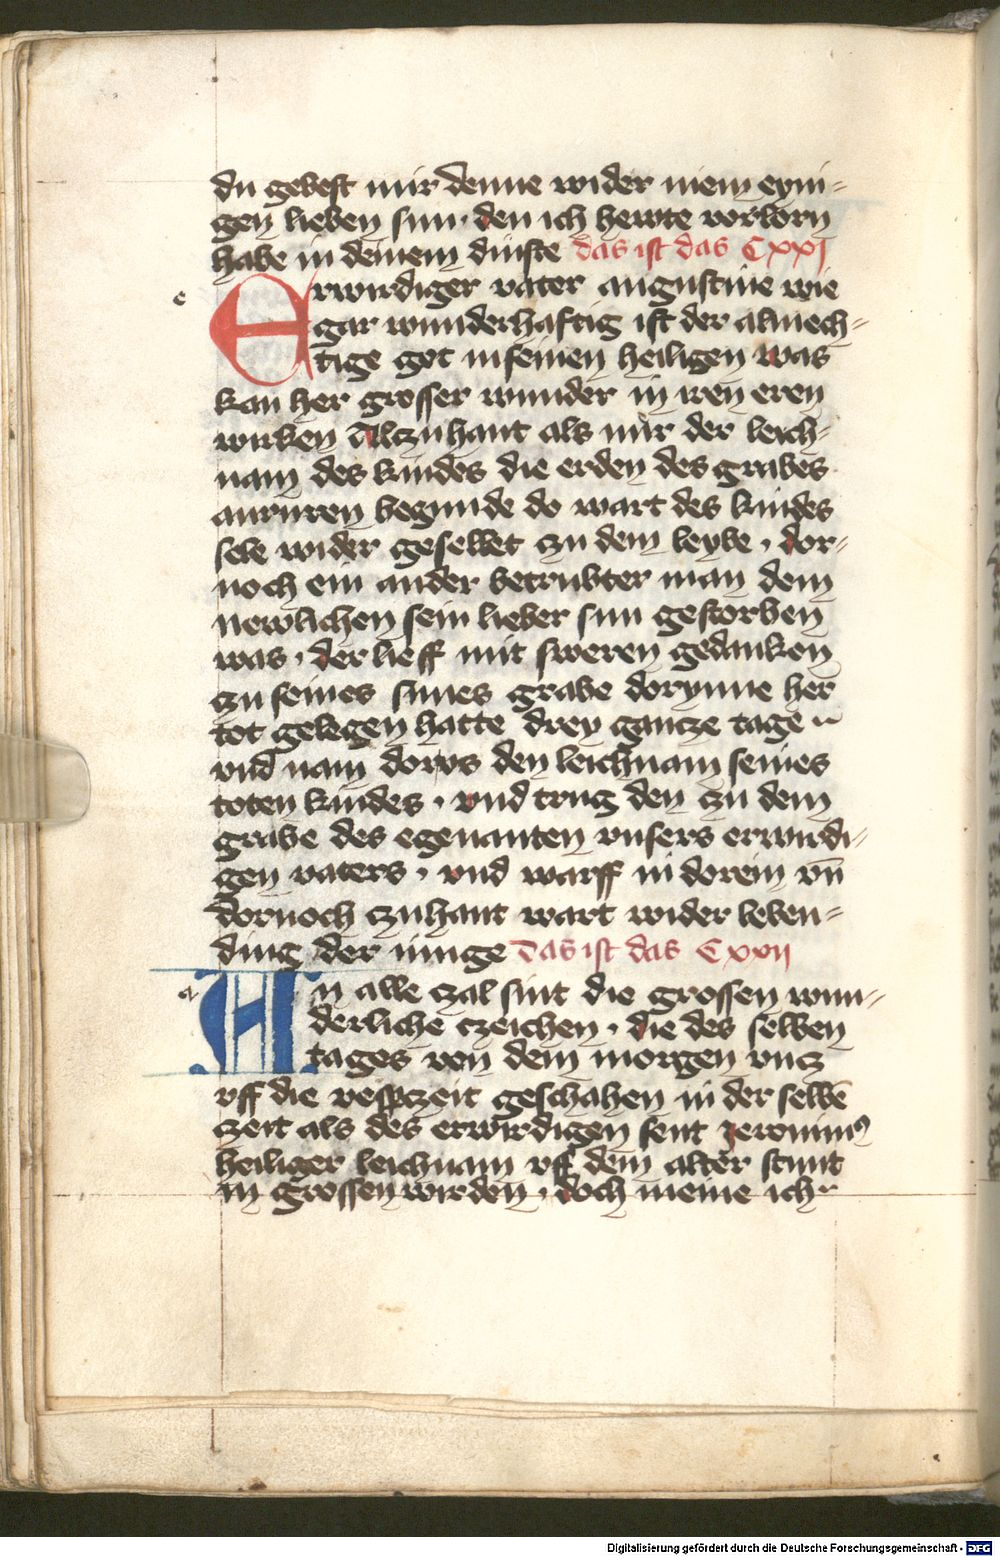 du gebest mir denne wider mein eyni-
gen lieben sun · den ich hewte vorlorn
habe in deinem dinste das ist das CXXI
e
Erwirdiger vater augustine wie
gar wunderhaftig ist der almech-
tige got in seinen heiligen was
kan her grosser wunder in iren eren
wirken Alczuhant als nur der leich-
nam des kindes die erden des grabes
anruren begunde do wart des kindes
sele wider gesellet zu dem leybe · dor-
noch ein ander betrubter man dem
newlichen sein lieber sun gestorben
was · der lieff mit sweren gedanken
zu seines sunes grabe dorynne her
tot gelegen hatte drey gancze tage
vnd nam dorvs den leichnam seines
toten kindes · vnd trug den zu dem
grabe des egenanten vnsers erwirdi-
gen vaters · vnd warff in dorein vn̄
dornoch zuhant wart wider leben-
ding der iunge Das ist das CXXII
a
An alle czal sint die grossen wun-
derliche czeichen · die des selben
tages von dem morgen vncz
vff die vespczeit geschahen in der selbē
zeit als des erwirdigen sent Jeronimꝰ
heiliger leichnam vff dem alter stunt
in grossen wirden · doch meine ich
Digitalisierung gefördert durch die Deutsche Forschungsgemeinschaft - DFG